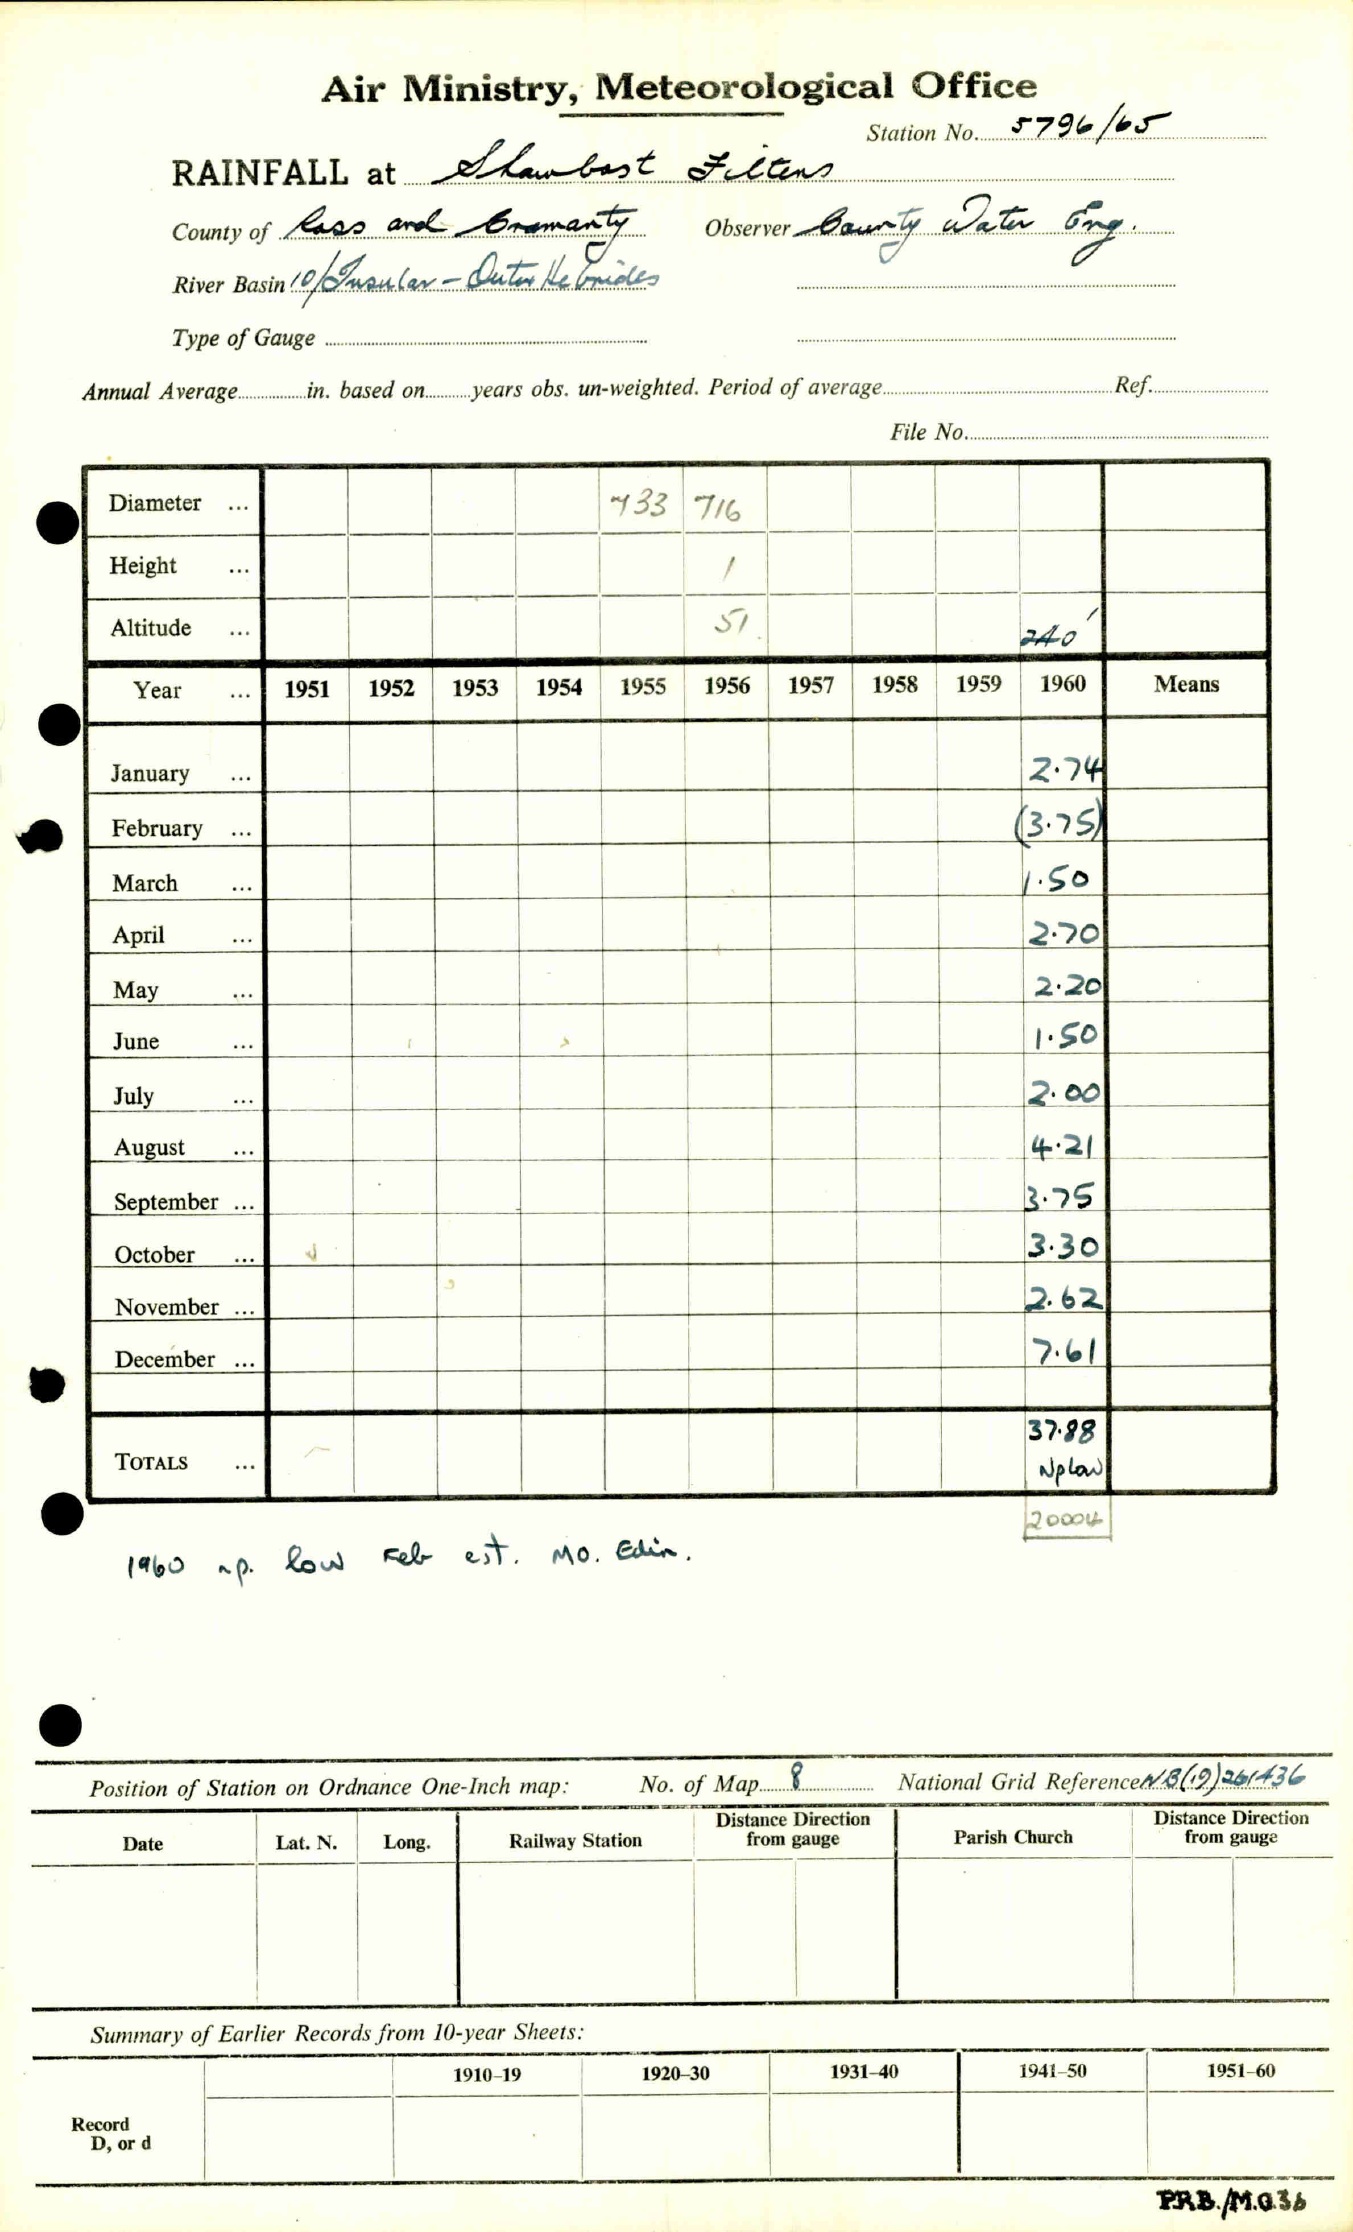 Air Ministry, Meteorological Office
Station No. 5796/65
RAINFALL at Shawbost Filters
County of Ross and Cromarty Observer County Water Eng.
River Basin 10/Insular - Outer Hebrides
Type of Gauge
Annual Average in. based on years obs. un-weighted. Period of average Ref.
File No.
Diameter ... 733 716
Height ... 1
Altitude ... 51 240'
Year ... 1951 1952 1953 1954 1955 1956 1957 1958 1959 1960 Means
January ... 2.74
February ... (3.75)
March ... 1.50
April ... 2.70
May ... 2.20
June ... 1.50
July ... 2.00
August ... 4.21
September ... 3.75
October ... 3.30
November ... 2.62
December ... 7.61
TOTALS ... 37.88
Np low
20004
1960 np. low Feb est. MO. Edin.
Position of Station on Ordnance One-Inch map: No. of Map 8 National Grid Reference NB(19)261436
Date Lat. N. Long. Railway Station Distance Direction from gauge Parish Church Distance Direction from gauge
Summary of Earlier Records from 10-year Sheets:
1910–19 1920–30 1931–40 1941–50 1951–60
Record
D, or d
PRB./M.O.36